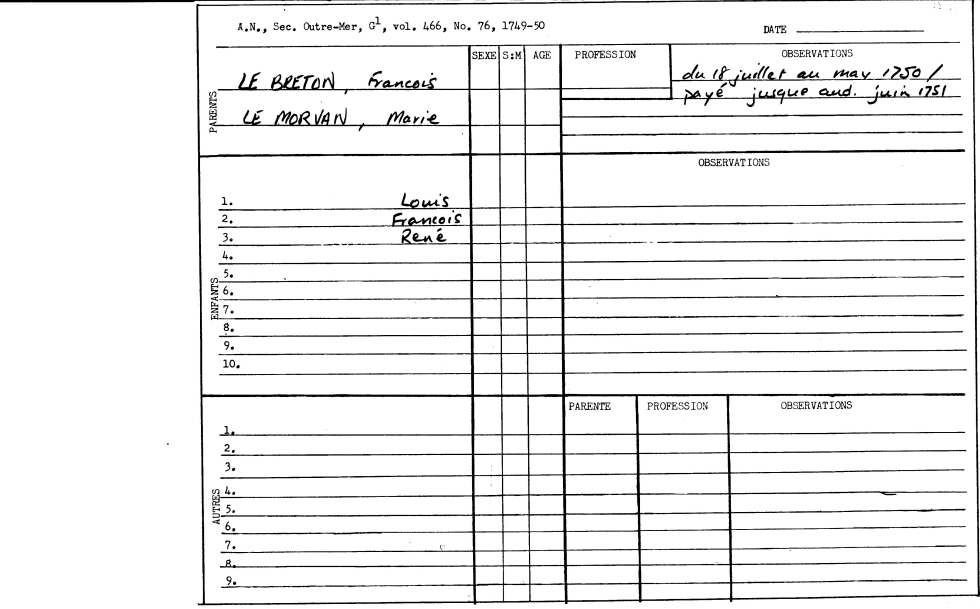 A.N., Sec. Outre-Mer, G1, vol. 466, No. 76, 1749-50 DATE
SEXE S:M AGE PROFESSION OBSERVATIONS
PARENTS
LE BRETON, Francois du 18 juillet au may 1750 /
payé jusque aud. juin 1751
LE MORVAN, Marie
OBSERVATIONS
ENFANTS
1. Louis
2. Francois
3. René
4.
5.
6.
7.
8.
9.
10.
PARENTE PROFESSION OBSERVATIONS
AUTRES
1.
2.
3.
4.
5.
6.
7.
8.
9.